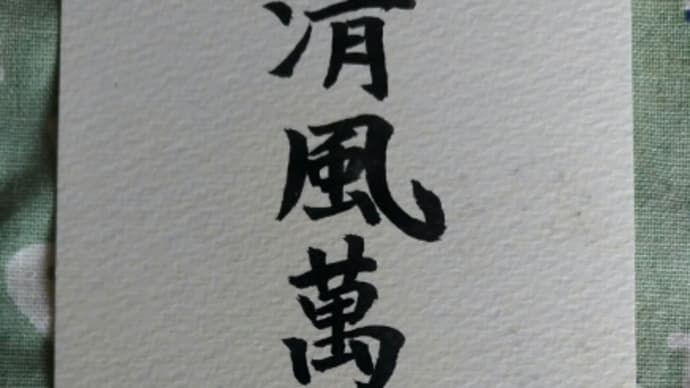 清風萬